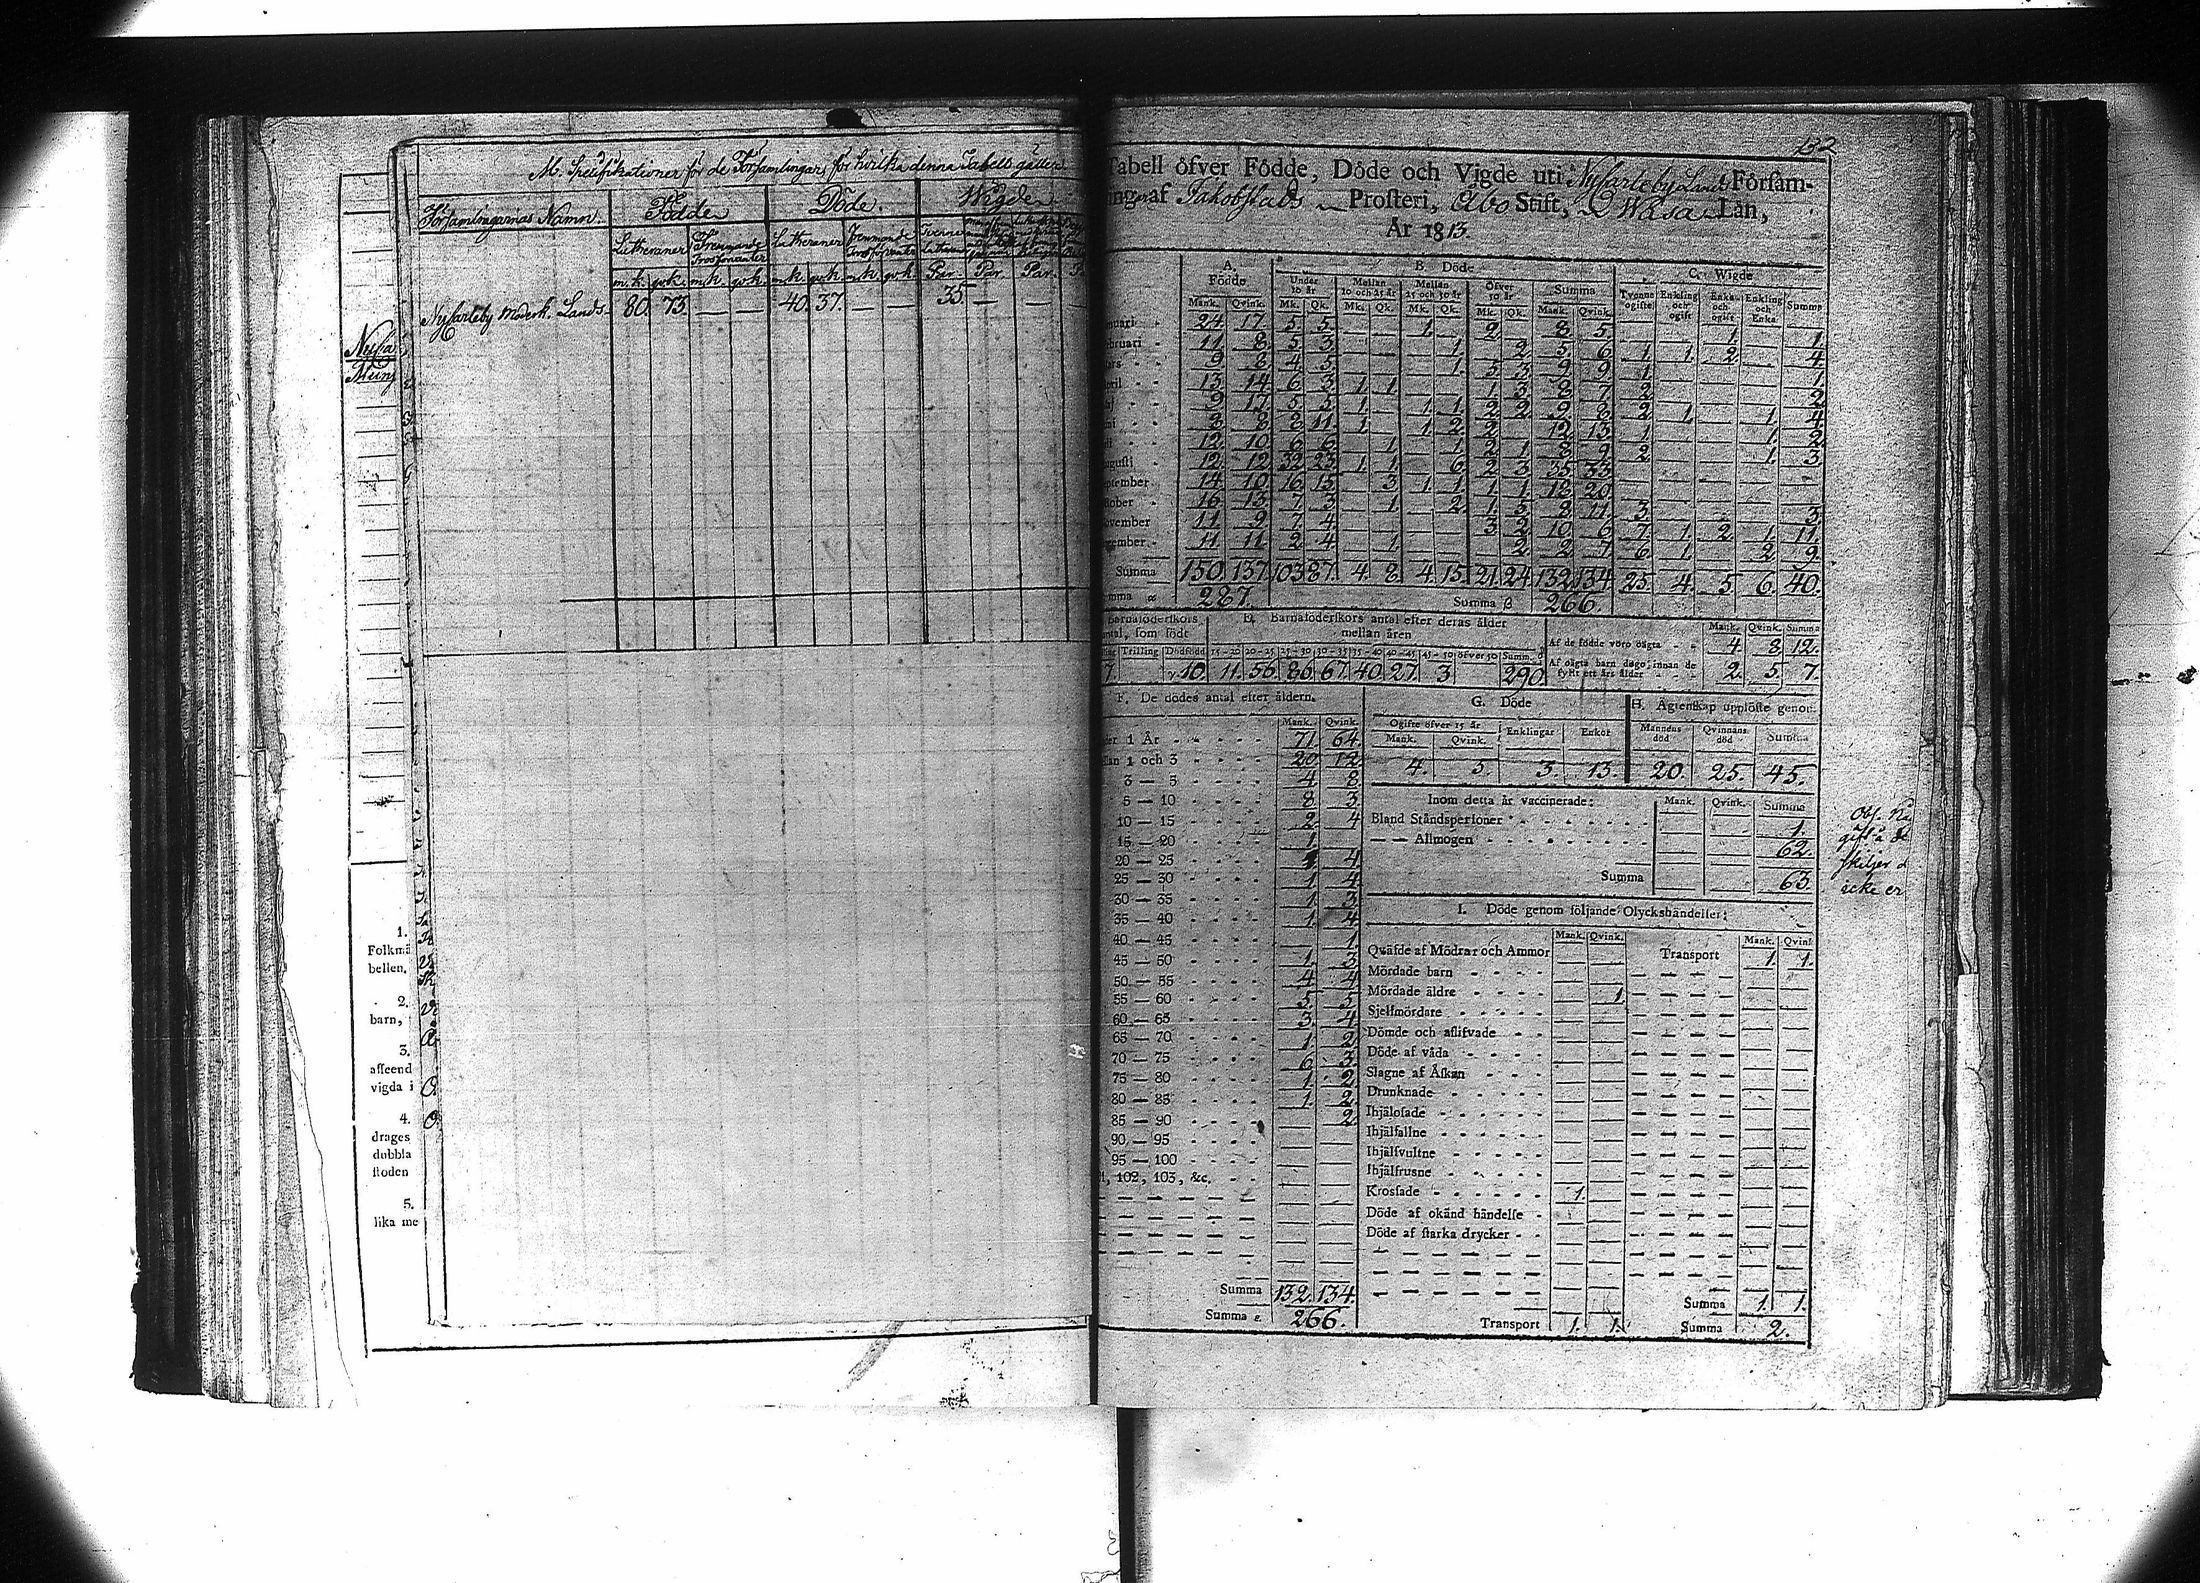 M. Specifikationer för de Församlingar, för hvilka denna Tabell gäller
Församlingarnas Namn. Födde Döde. Wigde
Lutheraner Främmande Trosförvanter Lutheraner Främmande Trosförvanter
m.k. qv.k. m.k. qv.k. m.k. qv.k. m.k. qv.k. Par Par. Par.
Nycarleby Moderk. Lands 80. 73. — — 40. 37. — — 35 — —
1.
Folkmä
bellen,
2.
barn,
3.
affeend
vigda i
4.
drages
dubbla
ſtoden
5.
lika me
132
Tabell öfver Födde, Döde och Vigde uti Nycarleby Lands Förſam-
ingar af Jakobstads Proſteri, Åbo Stift, Wasa Län,
År 1813.
A. Födde B. Döde C. Wigde
Under 10 år Mellan 10 och 25 år Mellan 25 och 50 år Öfver 50 år Summa Tvenne ogifte Enkling och ogift Enka och ogift Enkling och Enka Summa
Mank. Qvink. Mk. Qk. Mk. Qk. Mk. Qk. Mk. Qk. Mank. Qvink.
nuari 24. 17. 5. 5. — — 1. — 2. — 8. 5. — — 1. — 1.
ebruari 11. 8. 3. 3. — — — 1. — 2. 5. 6. 1. 1. 2. — 4.
ars 9. 8. 4. 5. — — — 1. 5. 3. 9. 9. 1. — — — 1.
pril 13. 14. 6. 3. 1. 1. — — 1. 3. 8. 7. 2. — — — 2.
aj 9. 17. 5. 5. 1. — 1. 1. 2. 2. 9. 8. 2. 1. — 1. 4.
ni 8. 8. 8. 11. 1. — 1. 2. 2. — 12. 13. 1. — — 1. 2.
li 12. 10. 6. 6. — 1. — 1. 2. 1. 8. 9. 2. — — 1. 3.
uguſti 12. 12. 32. 23. 1. 1. — 6. 2. 3. 35. 33. — — — — —
eptember 14. 10. 16. 15. — 3. 1. 1. 1. 1. 18. 20. — — — — —
ktober 16. 13. 7. 3. — 1. — 2. 1. 3. 8. 11. 3. — — — 3.
ovember 11. 9. 7. 4. — — — — 3. 2. 10. 6. 7. 1. 2. 1. 11.
ecember 11. 11. 2. 4. — 1. — — — 2. 2. 7. 6. 1. — 2. 9.
Summa 150. 137. 103. 87. 4. 8. 4. 15. 21. 24. 132. 134. 25. 4. 5. 6. 40.
mma α 287. Summa β 266.
Barnaföderſkors antal, ſom födt E. Barnaföderſkors antal efter deras ålder mellan åren
Trilling Dödfödd 15-20 20-25 25-30 30-35 35-40 40-45 45-50 öfver 50 Summ.
7. γ.10. 11. 56. 86. 67. 40. 27. 3. 290.
Mank. Qvink. Summa
Af de födde voro oägta 4. 8. 12.
Af oägta barn dogo, innan de fyllt ett års ålder 2. 5. 7.
F. De dödes antal efter åldern.
Mank. Qvink.
er 1 År 71. 64.
llan 1 och 3 20. 12.
3 — 5 4. 8.
5 — 10 8. 3.
10 — 15 2. 4
15 — 20 1.
20 — 25 1. 4.
25 — 30 1. 4.
30 — 35 1. 3.
35 — 40 1. 4.
40 — 45 — 1.
45 — 50 1. 3.
50 — 55 4. 4.
55 — 60 5. 5.
60 — 65 3. 4.
65 — 70 1. 2.
70 — 75 6. 3.
75 — 80 1. 2.
80 — 85 1. 2.
85 — 90 — 2.
90 — 95
95 — 100
1, 102, 103, &c.
Summa 132. 134.
Summa ε. 266.
G. Döde
Ogifte öfver 15 år Enklingar Enkor
Mank. Qvink.
4. 5. 3. 13.
H. Ägtenſkap upplöſte genom
Mannens död Qvinnans död Summa
20. 25. 45.
Inom detta år vaccinerade: Mank. Qvink. Summa
Bland Ståndsperſoner — — 1.
— — Allmogen — — 62.
Summa — — 63.
I. Döde genom följande Olyckshändelſer:
Mank. Qvink. Mank. Qvink
Qväfde af Mödrar och Ammor — — Transport 1. 1.
Mördade barn
Mördade äldre — 1.
Sjelfmördare
Dömde och aflifvade
Döde af våda
Slagne af Åſkan
Drunknade
Ihjälofade
Ihjälfallne
Ihjälſvultne
Ihjälfrusne
Kroſſade 1.
Döde af okänd händelſe
Döde af ſtarka drycker
Summa 1. 1.
Transport 1. 1. Summa 2.
skiljer
icke er